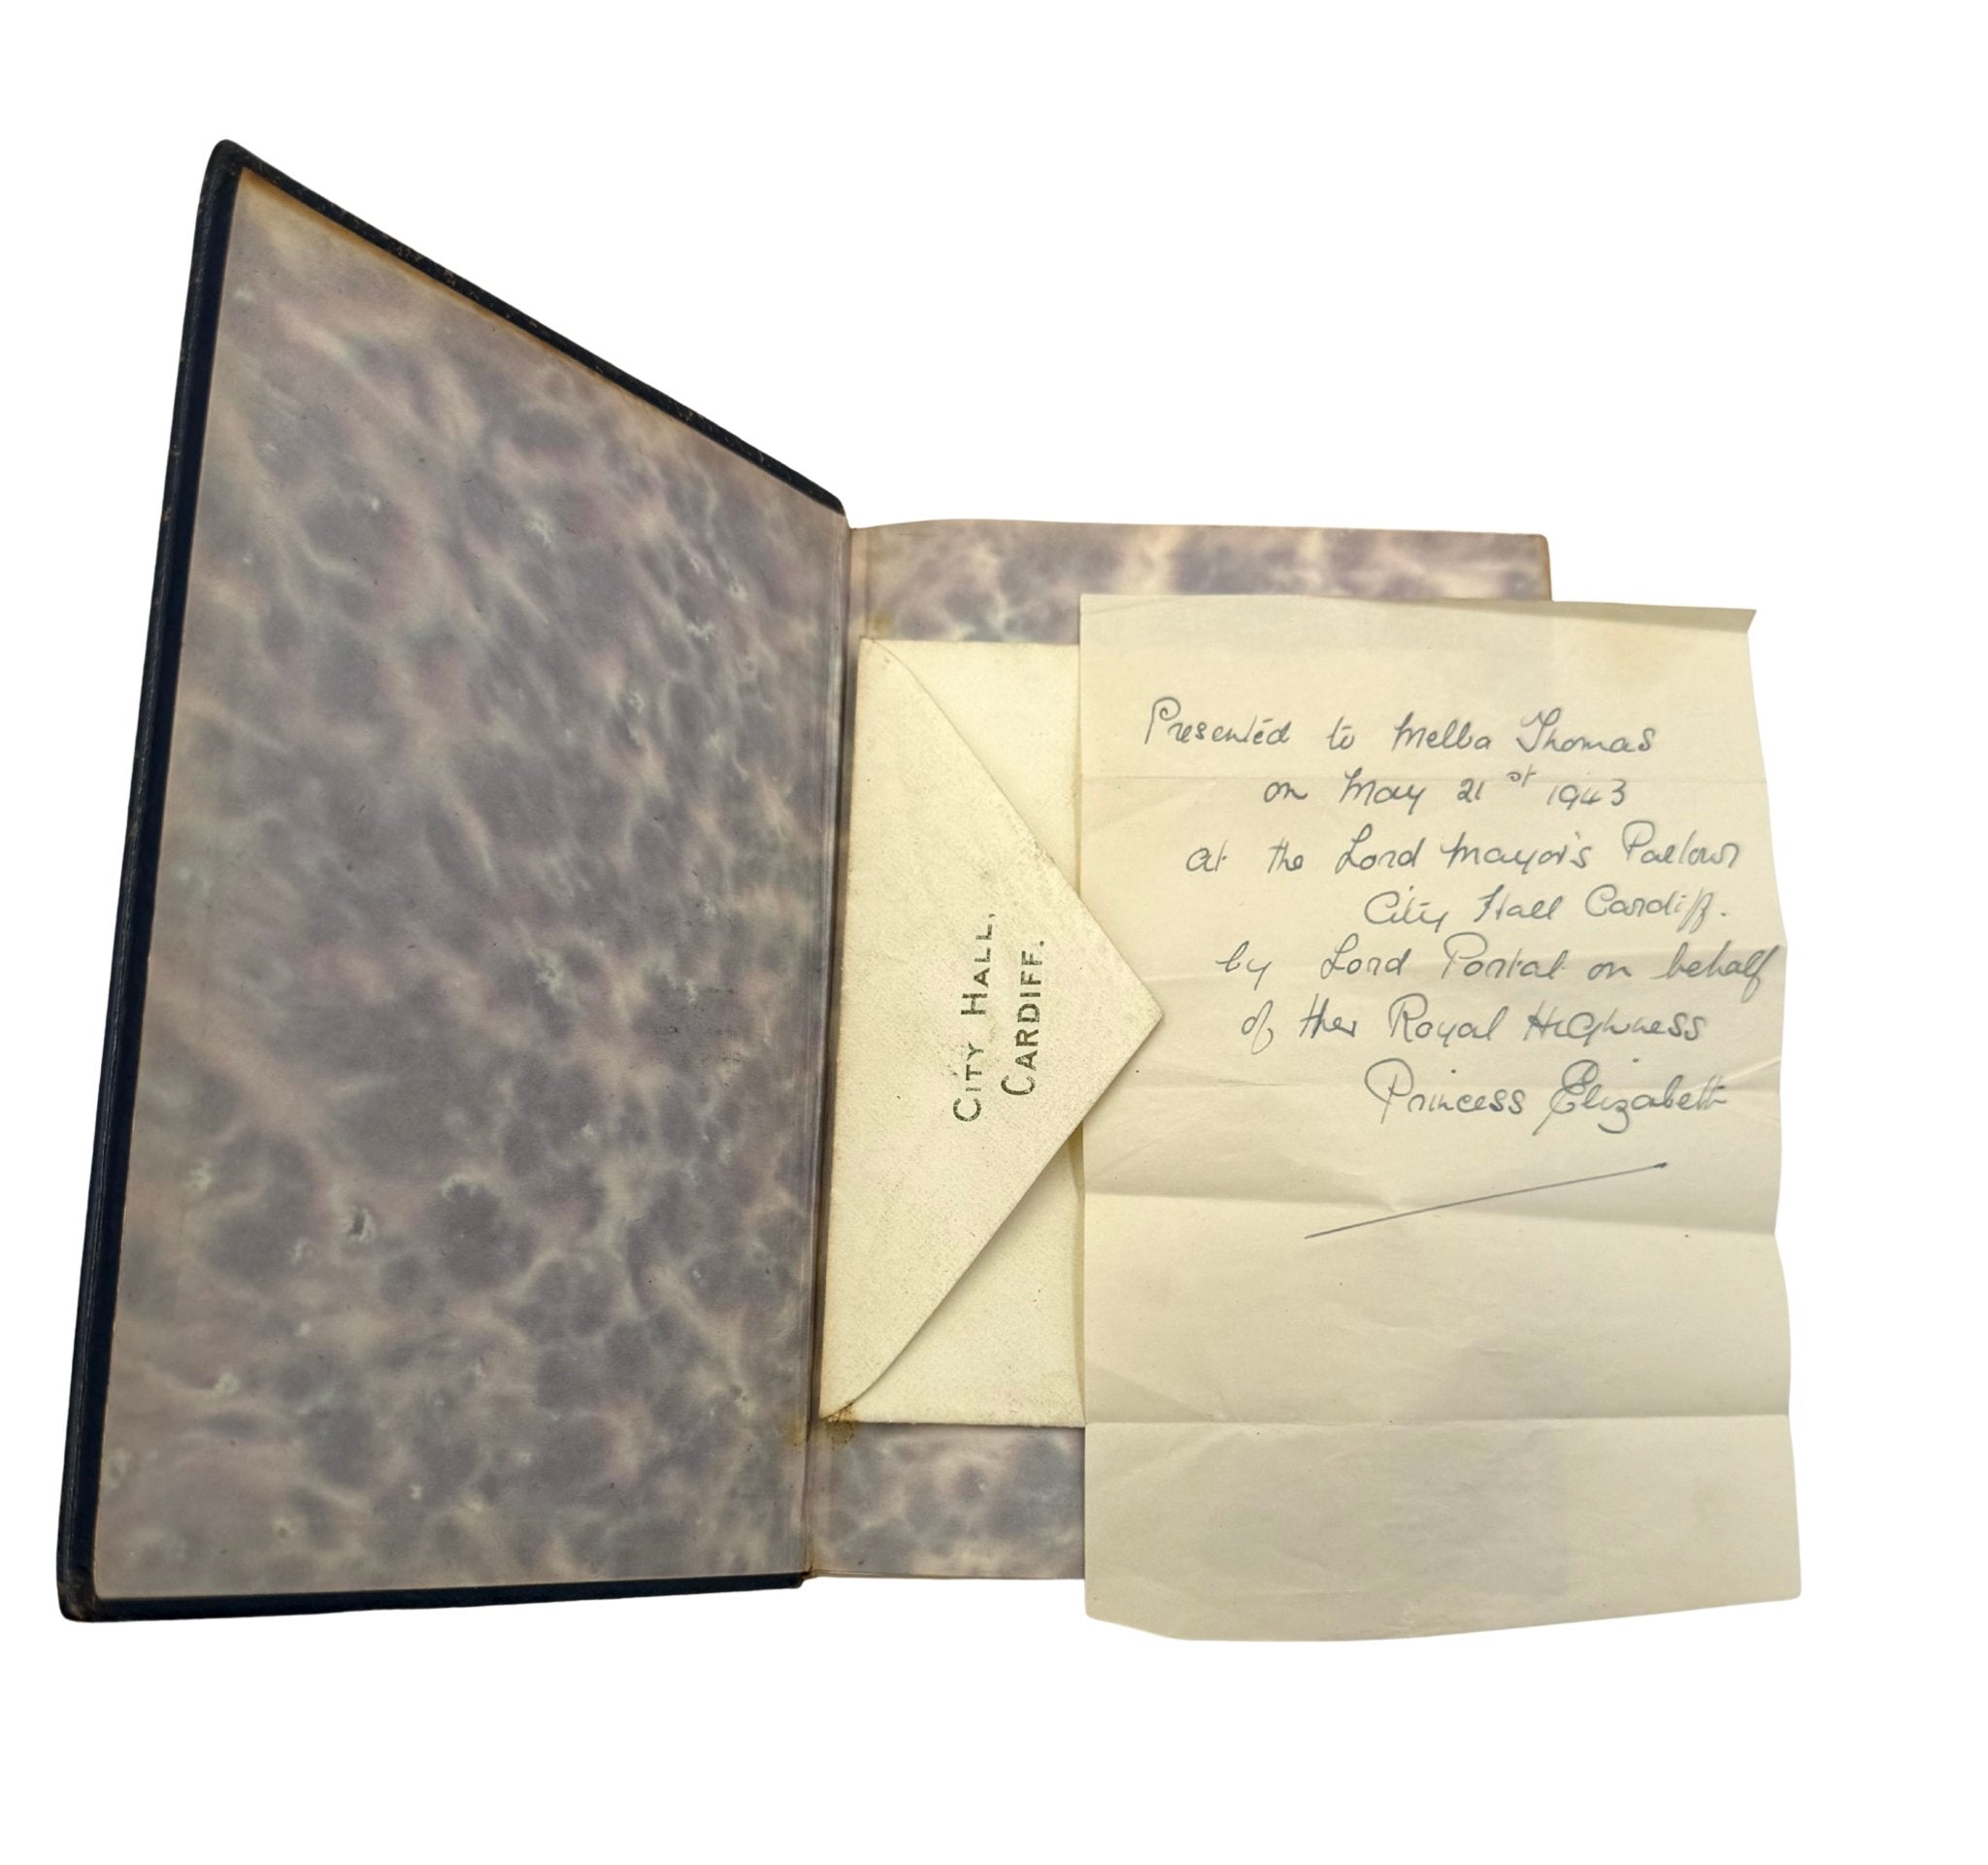 CITY HALL,
CARDIFF.
Presented to Melba Thomas
on May 21st 1943
at the Lord Mayor's Parlour
City Hall Cardiff.
by Lord Portal on behalf
of Her Royal Highness
Princess Elizabeth